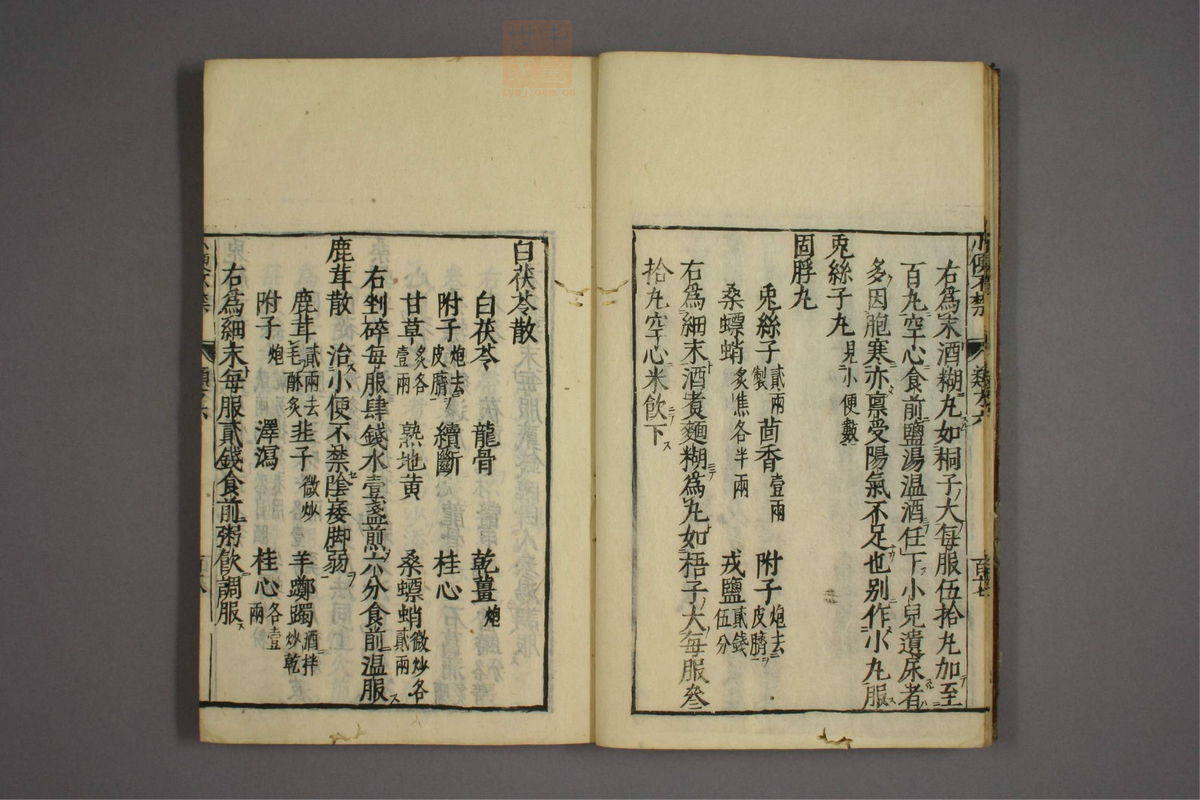 右爲末酒糊丸如桐子大每服伍拾丸加至
百丸空心食前鹽湯温酒任下小兒遺尿者
多因胞寒亦禀受陽氣不足也别作小丸服
兎絲子丸 見小便數
固脬丸
兎絲子 貳兩製 茴香 壹兩 附子 炮去皮臍
桑螵蛸 炙焦各半兩 戎鹽 貳錢伍分
右爲細末酒煮麵糊爲丸如梧子大每服叄
拾丸空心米飲下
白茯苓散
白茯苓 龍骨 乾薑 炮
附子 炮去皮臍 續斷 桂心
甘草 炙各壹兩 熟地黄 桑螵蛸 微炒各貳兩
右剉碎每服肆錢水壹盞煎六分食前温服
鹿茸散 治小便不禁隂痿脚弱
鹿茸 貳兩去毛酥炙 韭子 微炒 羊躑躅 酒拌炒乾
附子 炮 澤瀉 桂心 各壹兩
右爲細末每服貳錢食前粥飲調服